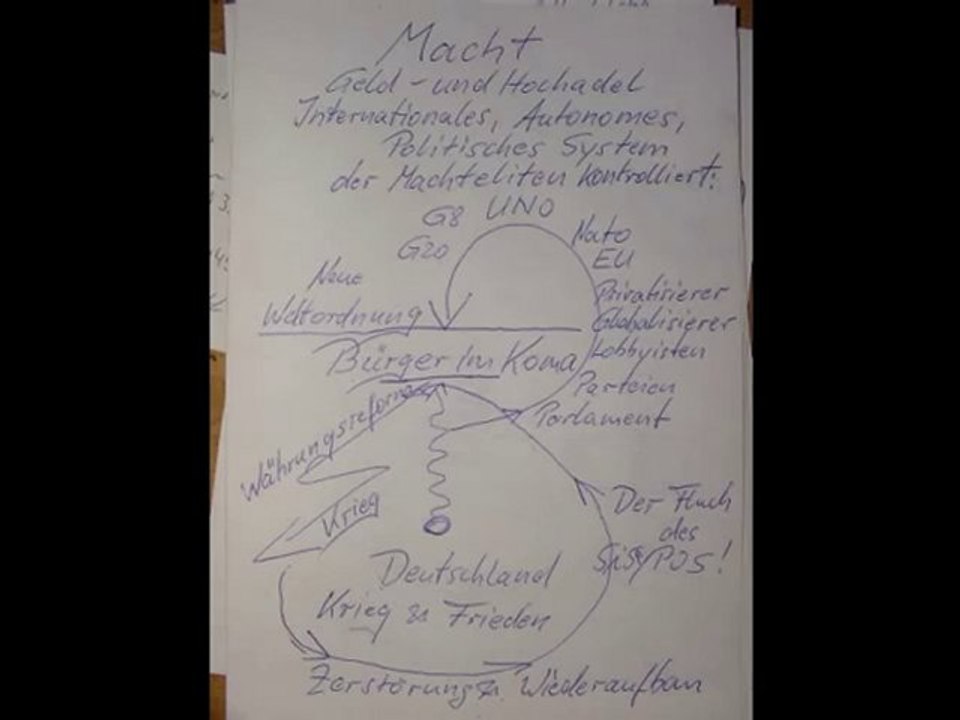 Macht
Geld - und Hochadel
Internationales, Autonomes,
Politisches System
der Machteliten kontrolliert:
G8 UNO
G20
Nato
EU
Neue
Weltordnung
Privatisierer
Globalisierer
Lobbyisten
Bürger im Koma
Parteien
Parlament
Währungsreform
Krieg
Der Fluch
des
SiSyPOS!
Deutschland
Krieg & Frieden
Zerstörung & Wiederaufbau